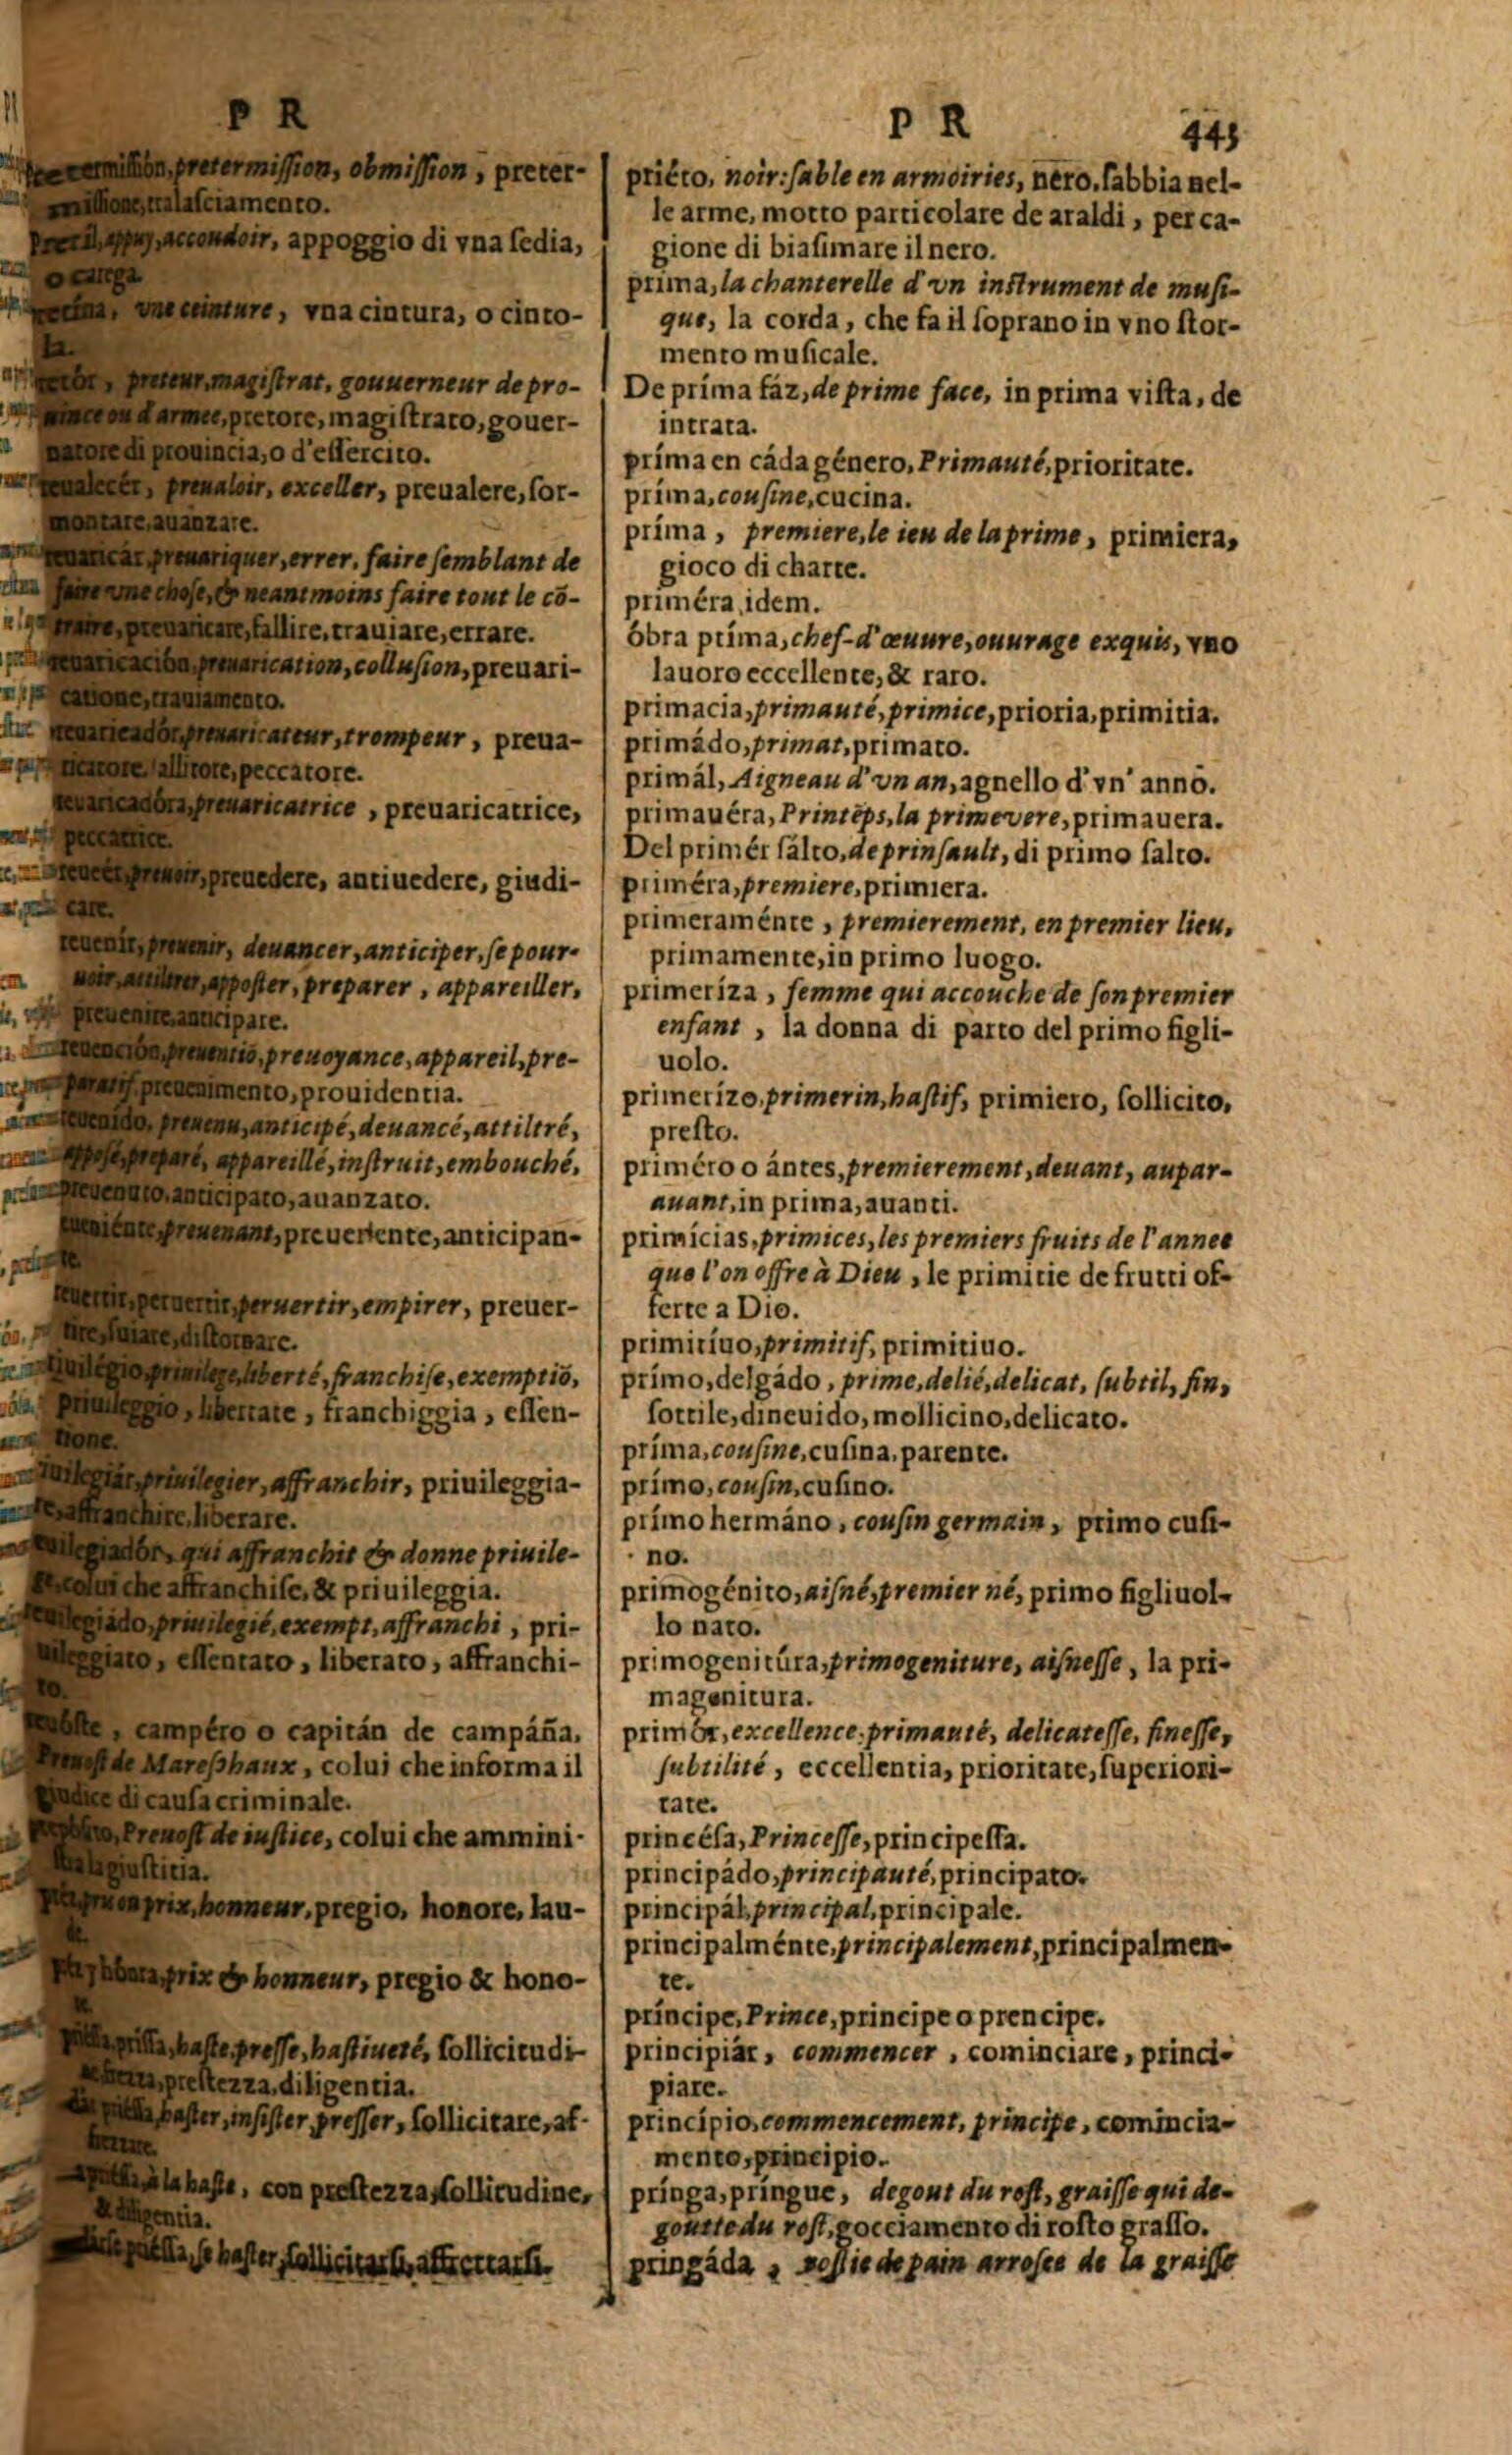 P R
pretermission, obmission, preter-
missione, tralasciamento.
appuy, accoudoir, appoggio di vna sedia,
o carega
vne ceinture, vna cintura, o cinto-
la.
preteur, magistrat, gouuerneur de pro-
uince ou d'armee, pretore, magistrato, gouer-
natore di prouincia, o d'essercito.
preualoir, exceller, preualere, sor-
montare, auanzare.
preuariquer, errer, faire semblant de
faire vne chose, & neantmoins faire tout le cō-
traire, preuaricare, fallire, trauiare, errare.
preuarication, collusion, preuari-
catione, trauiamento.
preuaricateur, trompeur, preua-
ricatore, peccatore.
preuaricatrice, preuaricatrice,
peccatrice.
preuoir, preuedere, antiuedere, giudi-
care.
preuenir, deuancer, anticiper, se pour-
uoir, attiltrer, apposter, preparer, appareiller,
preuenire, anticipare.
preuentiō, preuoyance, appareil, pre-
paratif, preuenimento, prouidentia.
preuenu, anticipé, deuancé, attiltré,
apposé, preparé, appareillé, instruit, embouché,
preuenuto, anticipato, auanzato.
preuenant, preuertente, anticipan-
te.
peruertir, peruertir, empirer, preuer-
tire, suiare, distornare.
priuilege, liberté, franchise, exemptiō,
priuileggio, libertate, franchiggia, essen-
tione.
priuilegier, affranchir, priuileggia-
re, affranchire, liberare.
qui affranchit & donne priuile-
ge, colui che affranchise, & priuileggia.
priuilegié, exempt, affranchi, pri-
uileggiato, essentato, liberato, affranchi-
to.
campéro o capitán de campáña,
Preuost de Mareshaux, colui che informa il
giudice di causa criminale.
Preuost de iustice, colui che ammini-
stra la giustitia.
prix, honneur, pregio, honore, lau-
de.
prix & honneur, pregio & hono-
re.
haste, presse, hastiueté, sollicitudi-
prestezza, diligentia.
haster, insister, presser, sollicitare, af-
frettare.
à la haste, con prestezza, sollitudine,
& diligentia.
se haster, sollicitarsi, affrettarsi.
P R 445
priéto, noir: sable en armoiries, nero, sabbia nel-
le arme, motto particolare de araldi, per ca-
gione di biasimare il nero.
prima, la chanterelle d'vn instrument de musi-
que, la corda, che fa il soprano in vno stor-
mento musicale.
De príma fáz, de prime face, in prima vista, de
intrata.
príma en cáda género, Primauté, prioritate.
príma, cousine, cucina.
príma, premiere, le ieu de la prime, primiera,
gioco di charte.
priméra, idem.
óbra príma, chef-d'œuure, ouurage exquis, vno
lauoro eccellente, & raro.
primacia, primauté, primice, prioria, primitia.
primádo, primat, primato.
primál, Aigneau d'vn an, agnello d'vn' anno.
primauéra, Printēps, la primevere, primauera.
Del primér sálto, de prinsault, di primo salto.
priméra, premiere, primiera.
primeraménte, premierement, en premier lieu,
primamente, in primo luogo.
primeríza, femme qui accouche de son premier
enfant, la donna di parto del primo figli-
uolo.
primerízo, primerin, hastif, primiero, sollicito,
presto.
priméro o ántes, premierement, deuant, aupar-
auant, in prima, auanti.
primícias, primices, les premiers fruits de l'annee
que l'on offre à Dieu, le primitie de frutti of-
ferte a Dio.
primitíuo, primitif, primitiuo.
prímo, delgádo, prime, delié, delicat, subtil, fin,
sottile, dineuido, mollicino, delicato.
príma, cousine, cusina, parente.
prímo, cousin, cusino.
prímo hermáno, cousin germain, primo cusi-
no.
primogénito, aisné, premier né, primo figliuol-
lo nato.
primogenitúra, primogeniture, aisnesse, la pri-
magenitura.
primór, excellence, primauté, delicatesse, finesse,
subtilité, eccellentia, prioritate, superiori-
tate.
princésa, Princesse, principessa.
principádo, principauté, principato.
principál, principal, principale.
principalménte, principalement, principalmen-
te.
príncipe, Prince, principe o prencipe.
principiár, commencer, cominciare, princi-
piare.
princípio, commencement, principe, comincia-
mento, principio.
prínga, príngue, degout du rost, graisse qui de-
goutte du rost, gocciamento di rosto grasso.
pringáda, rostie de pain arrosee de la graisse